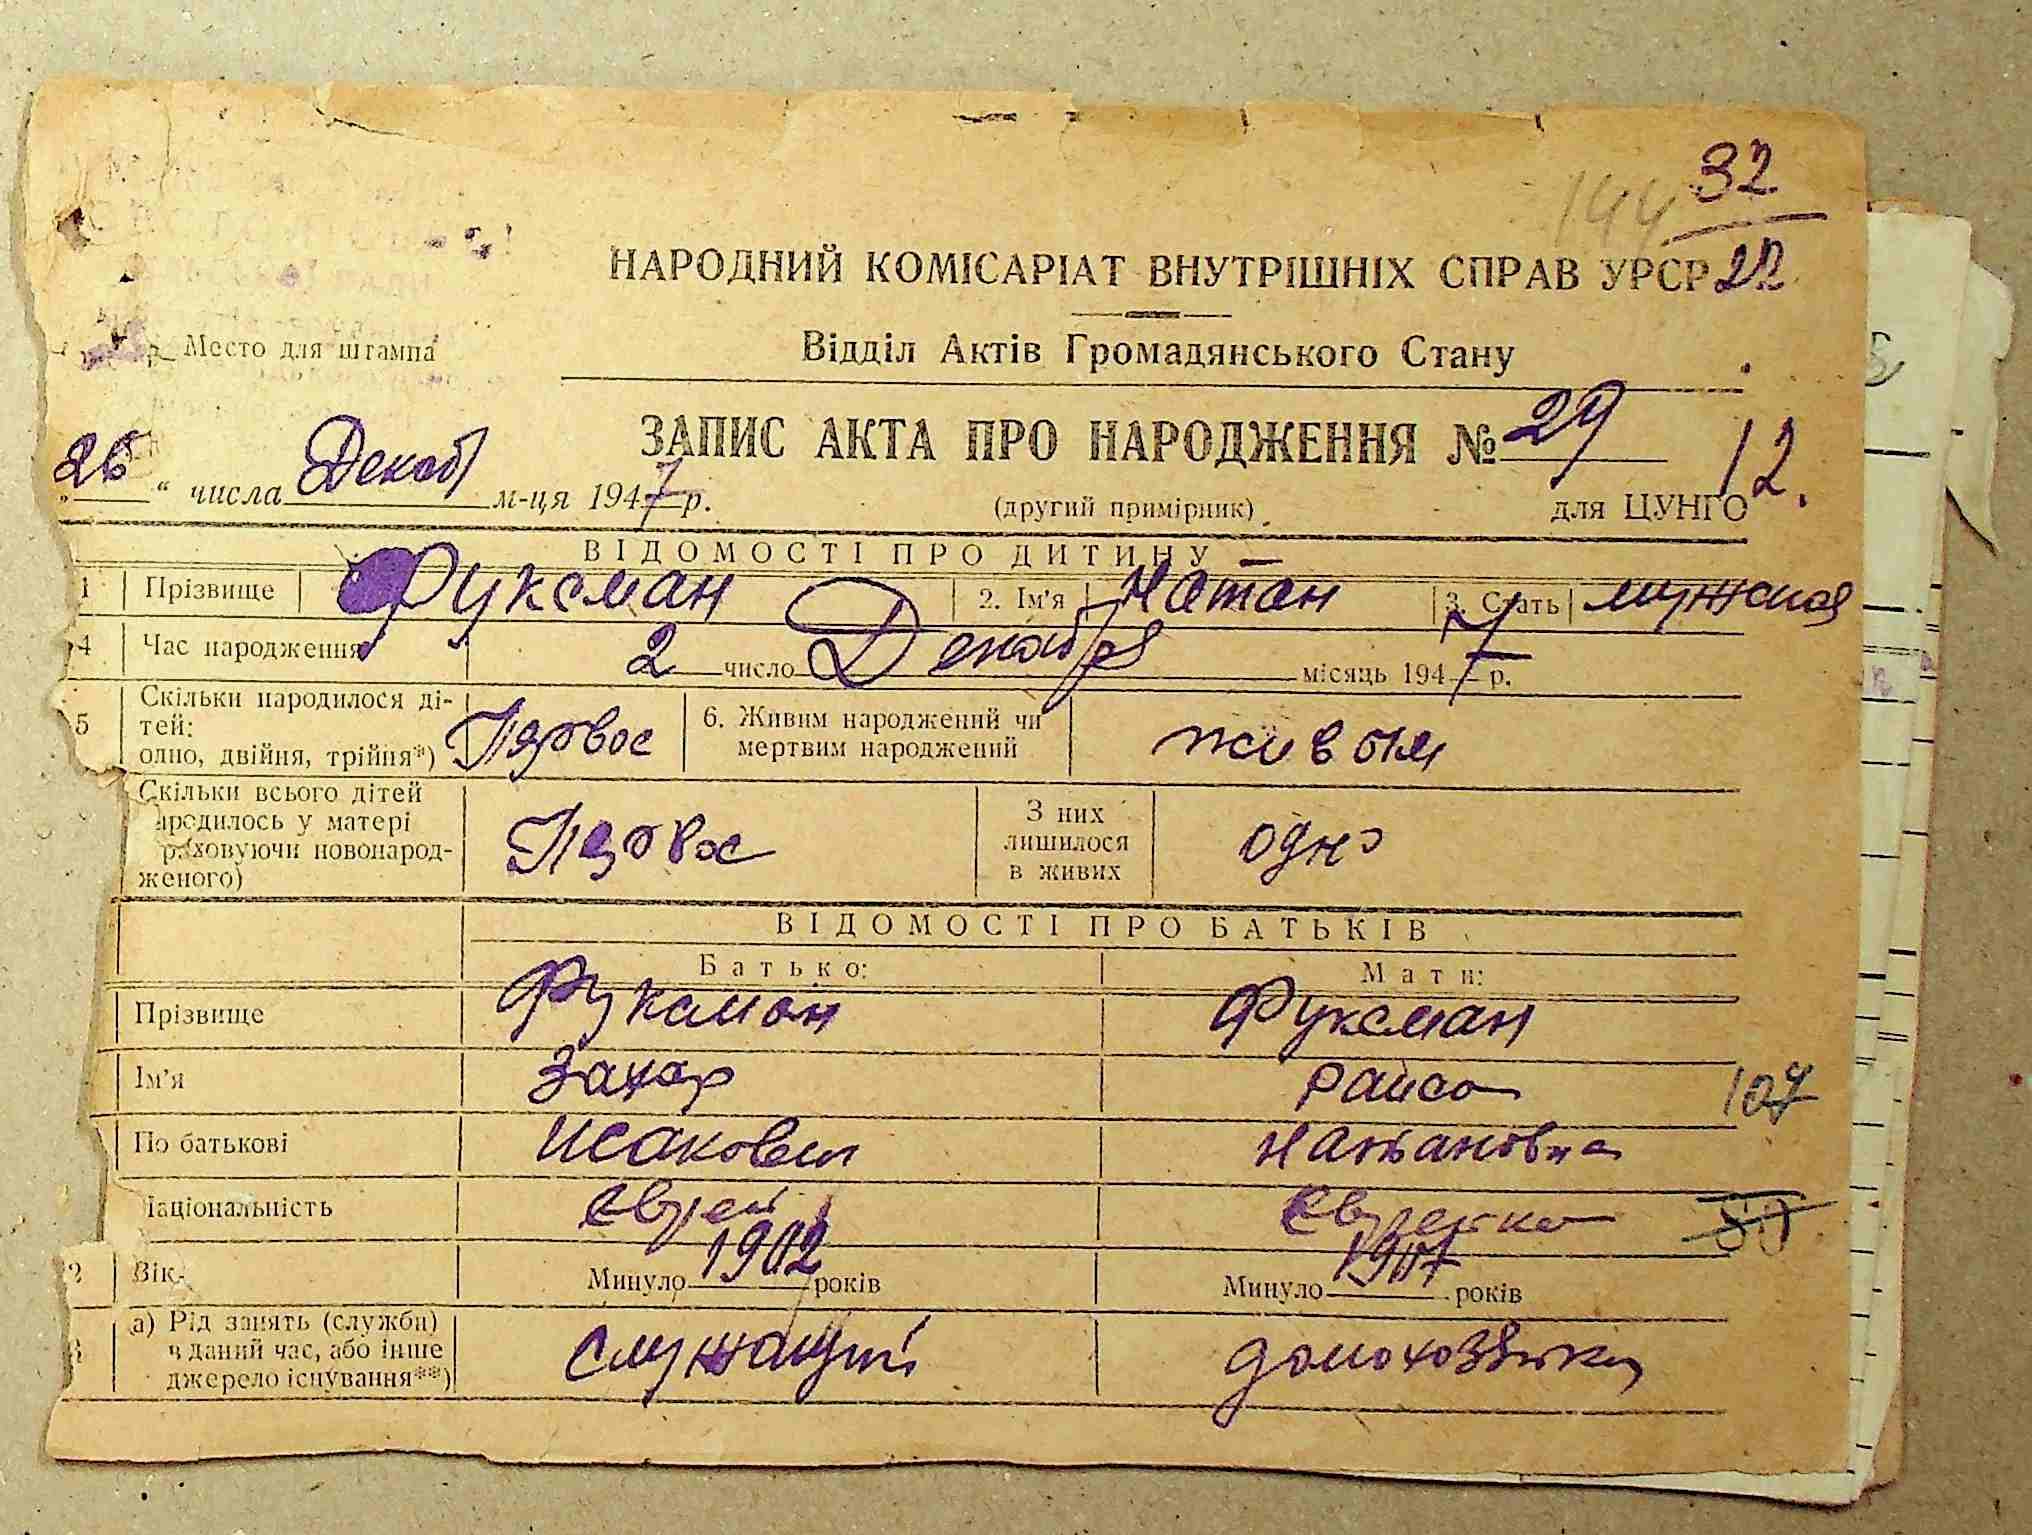 32
144
НАРОДНИЙ КОМІСАРІАТ ВНУТРІШНІХ СПРАВ УРСР 22
Место для штампа
Відділ Актів Громадянського Стану
ЗАПИС АКТА ПРО НАРОДЖЕННЯ № 29
12.
„26“ числа Декаб м-ця 1947 р.
(другий примірник)
для ЦУНГО
ВІДОМОСТІ ПРО ДИТИНУ
1 Прізвище Фуксман 2. Ім'я Натан 3. Стать мужской
4 Час народження 2 число Декабря місяць 1947 р.
5 Скільки народилося ді-
тей:
одно, двійня, трійня*) Первое
6. Живим народжений чи
мертвим народжений живым
Скільки всього дітей
ародилось у матері
раховуючи новонарод-
женого) Первое
З них
лишилося
в живих
одно
ВІДОМОСТІ ПРО БАТЬКІВ
Батько: Мати:
Прізвище Фуксман Фуксман
Ім'я Захар Раиса 107
По батькові Исакович Натановна
Національність Еврей Еврейка
2 Вік Минуло 1902 років Минуло 1907 років
а) Рід занять (служба)
в даний час, або інше
джерело існування**)
служащий домохозяйка